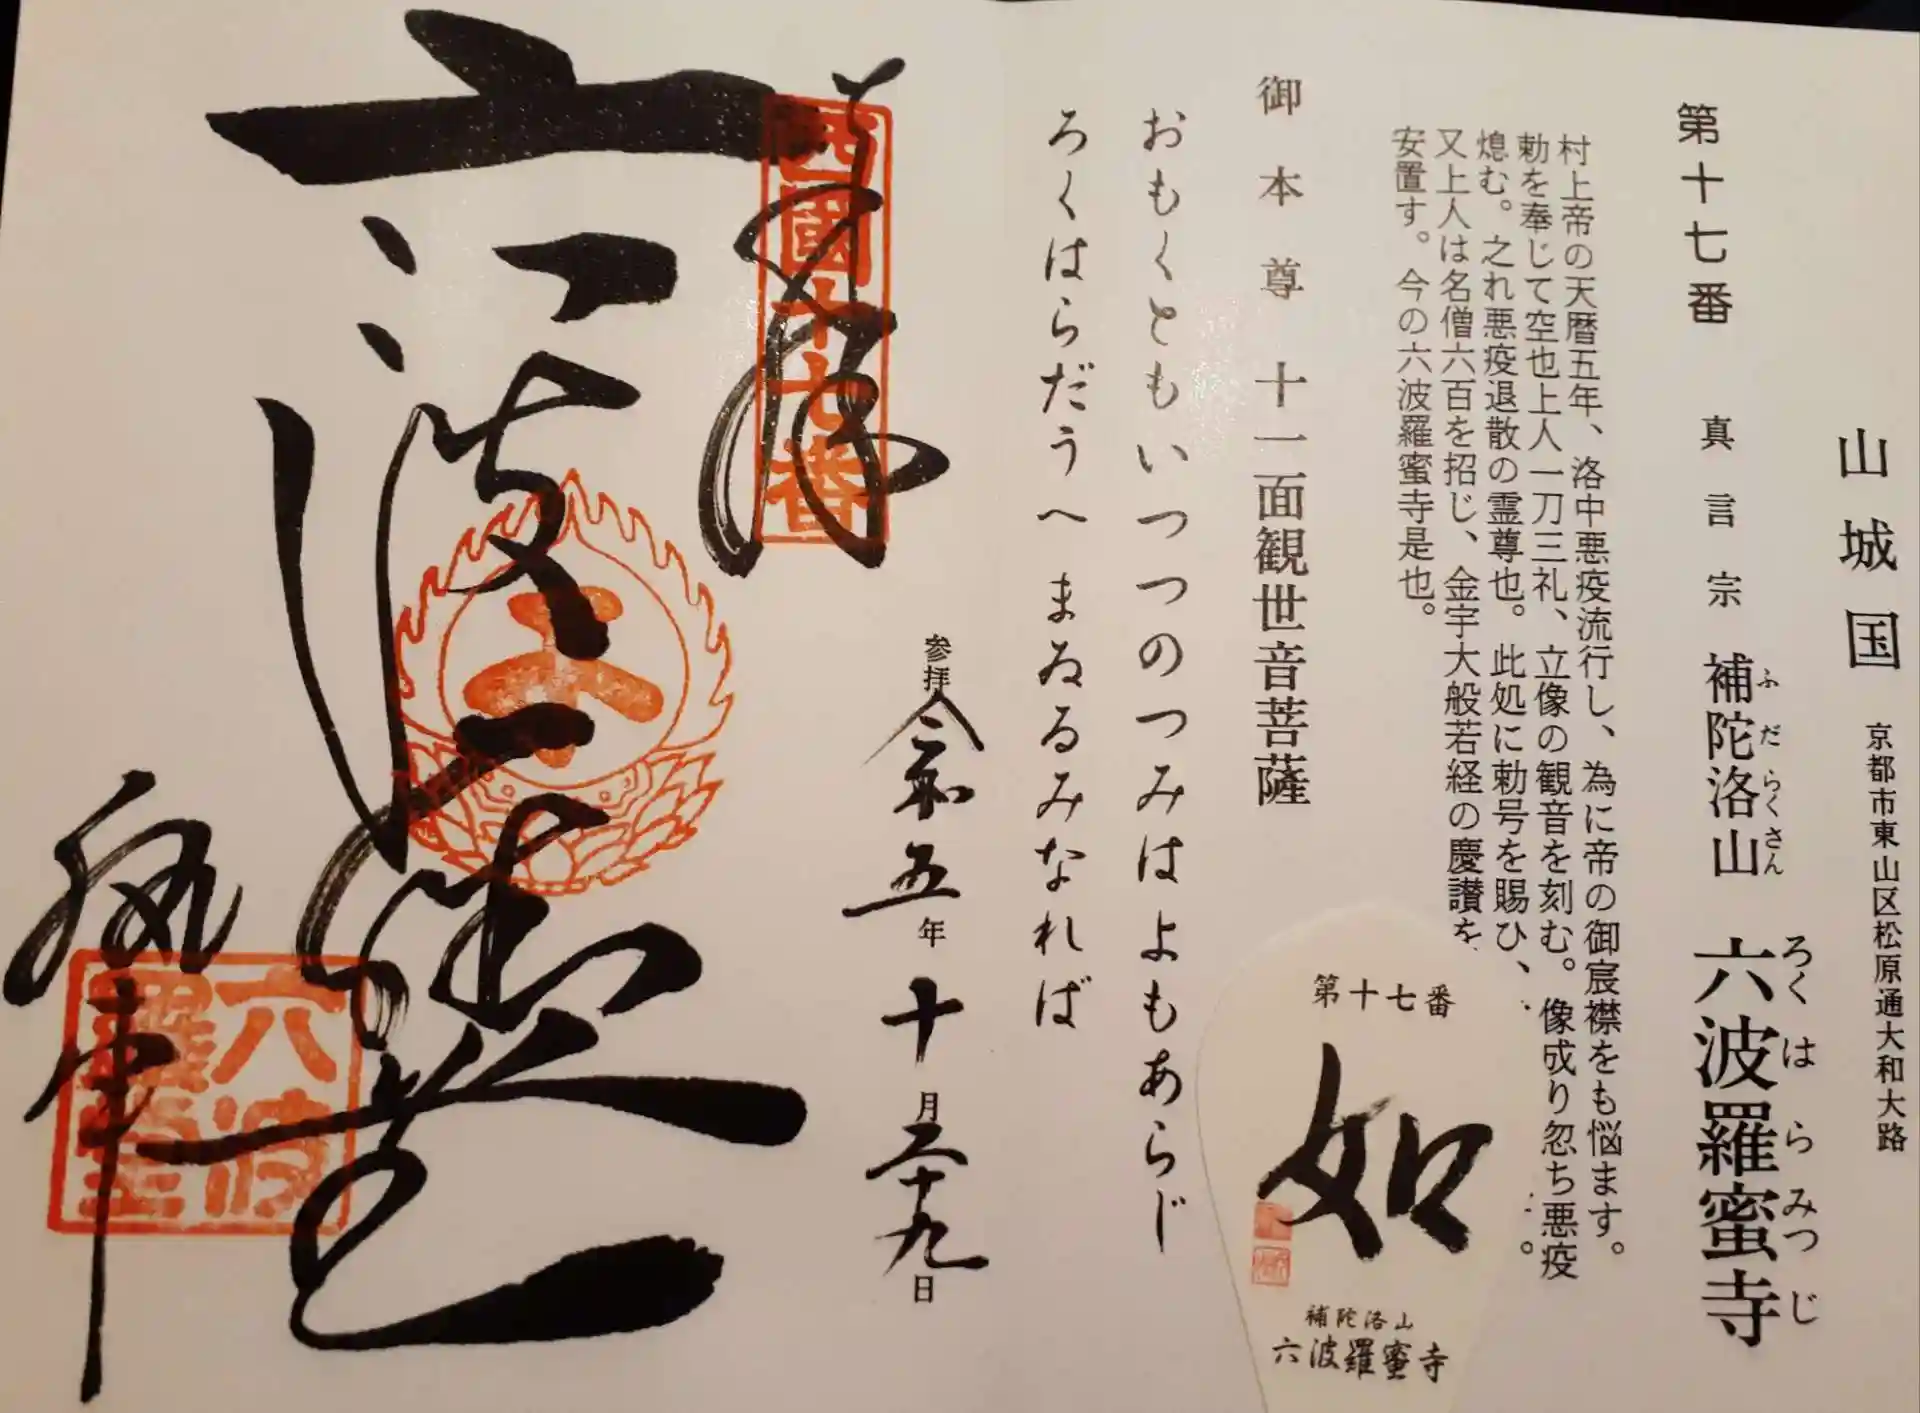 山城国 京都市東山区松原通大和大路
第十七番 真言宗 補陀洛山 六波羅蜜寺
ふだらくさん ろくはらみつじ
村上帝の天暦五年、洛中悪疫流行し、為に帝の御宸襟をも悩ます。
勅を奉じて空也上人一刀三礼、立像の観音を刻む。像成り忽ち悪疫
熄む。之れ悪疫退散の霊尊也。此処に勅号を賜ひ、
又上人は名僧六百を招じ、金字大般若経の慶讃を
安置す。今の六波羅蜜寺是也。
御本尊 十一面観世音菩薩
おもくともいつつのつみはよもあらじ
ろくはらだうへまゐるみなれば
第十七番
如
補陀洛山
六波羅蜜寺
参拝 令和五年十月二十九日
奉拝
西國十七番
六波羅蜜寺
六波羅蜜